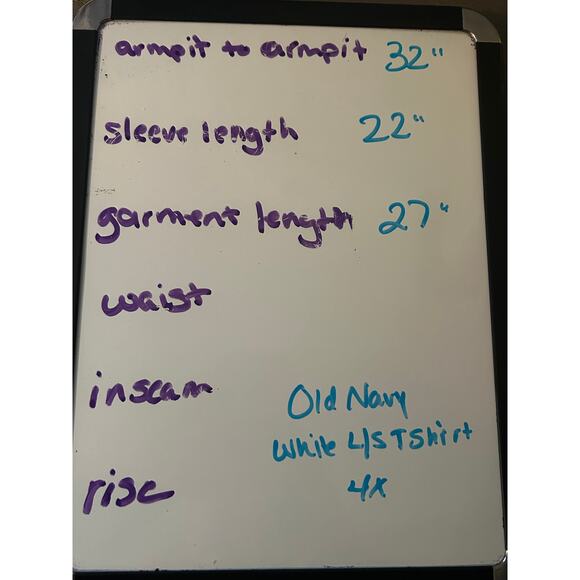 armpit to armpit 32"
sleeve length 22"
garment length 27"
waist
inseam
rise
Old Navy
White L/S T Shirt
4X